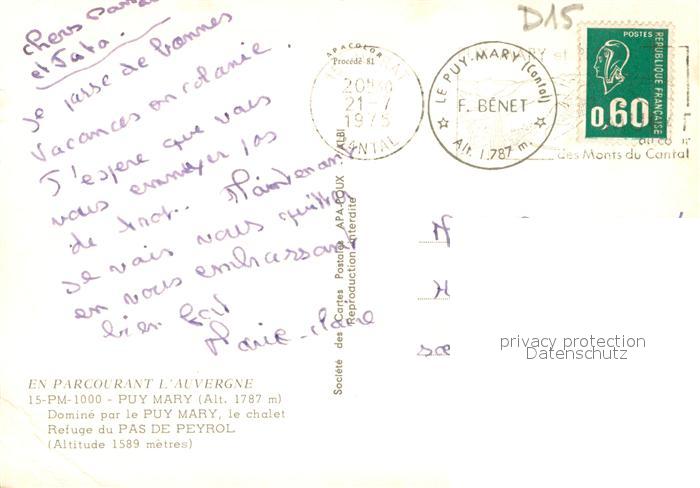 chers
et Tata.
Je passe de bonnes
vacances en colonie.
J'espère que vous
vous ennuyer pas
de trot.. Maintenant
je vais vous quitter
en vous embrassant
bien fort
Marie-claire
EN PARCOURANT L'AUVERGNE
15-PM-1000 - PUY MARY (Alt. 1787 m)
Dominé par le PUY MARY, le chalet
Refuge du PAS DE PEYROL
(Altitude 1589 mètres)
APACOLOR
Procédé 81
Société des Cartes Postales APA-POUX ALBI
Reproduction interdite
21-7
1975
CANTAL
LE PUY-MARY (Cantal)
F. BÉNET
Alt. 1.787 m.
D15
des Monts du Cantal
POSTES
RÉPUBLIQUE FRANÇAISE
0,60
privacy protection
Datenschutz